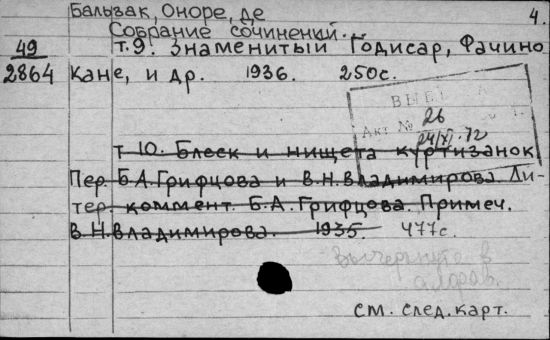 Бальзак, Оноре, де
4.
Собрание сочинений...
49
2864
т.9. Знаменитый Годисар, Фачино
Кане, и др. 1936. 250с.
Акт № 26
24/XI-72
т 10. Блеск и нищета куртизанок
Пер. Б.А.Грифцова и В.Н.Владимирова. Ли-
тер. коммент. Б.А.Грифцова. Примеч.
В.Н.Владимирова. 1935. 477с.
Вычеркнуте в
см. след. карт.